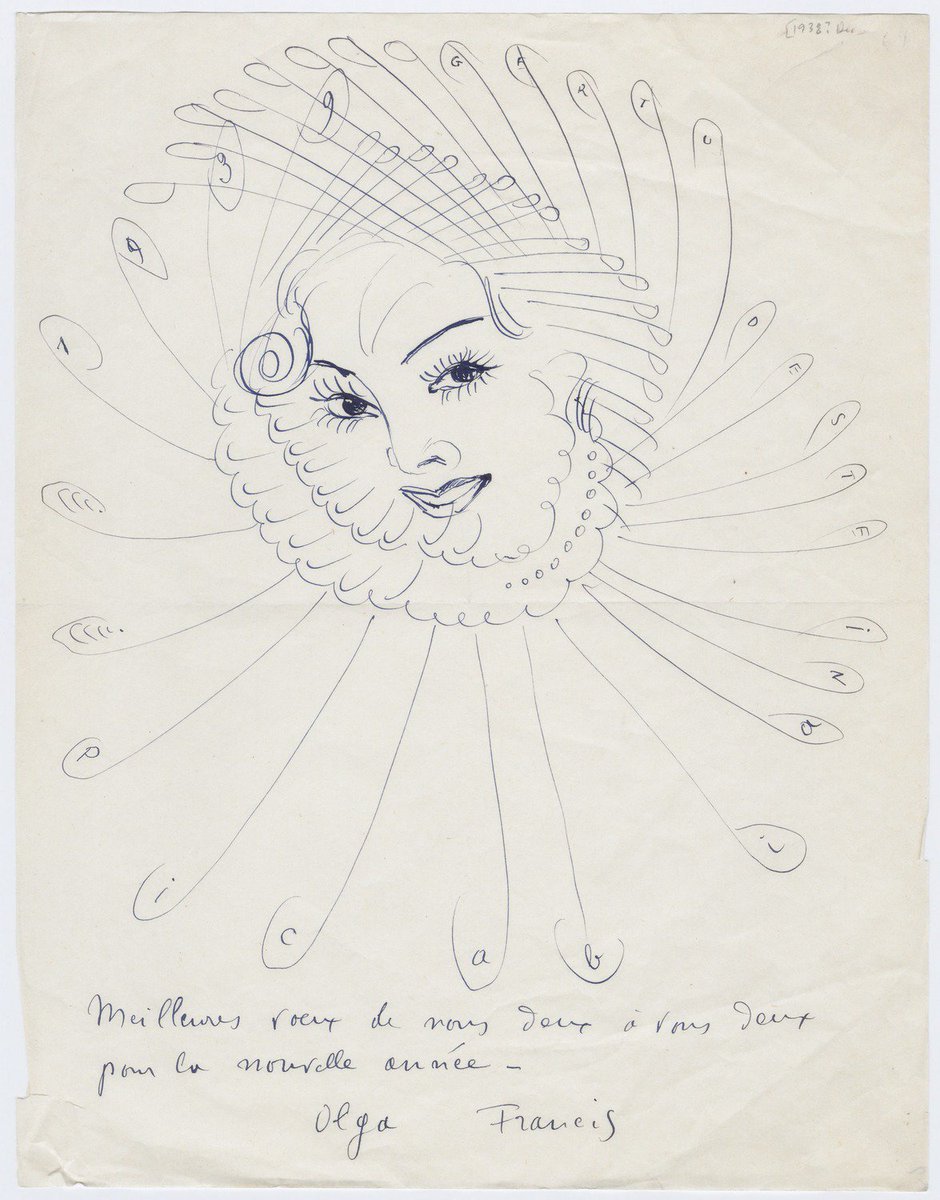 [1938? Dec
1 9 3 9
G A R T U D E S T E i N
P i c a b i a
Meilleures voeux de nous deux à vous deux
pour la nouvelle année -
Olga Francis